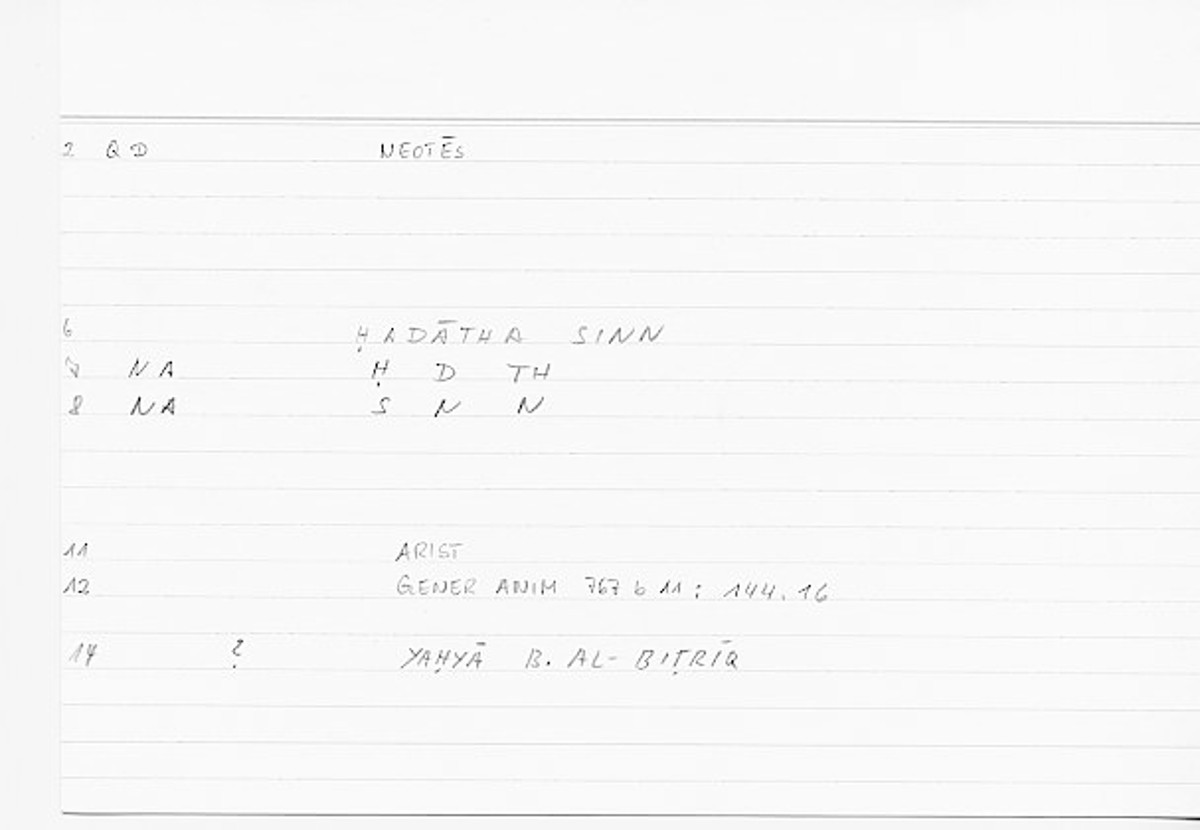 2 QD NEOTĒS
6 ḤADĀTHA SINN
7 NA Ḥ D TH
8 NA S N N
11 ARIST
12 GENER ANIM 767 b 11 : 144.16
14 ? YAḤYĀ B. AL-BIṬRĪQ